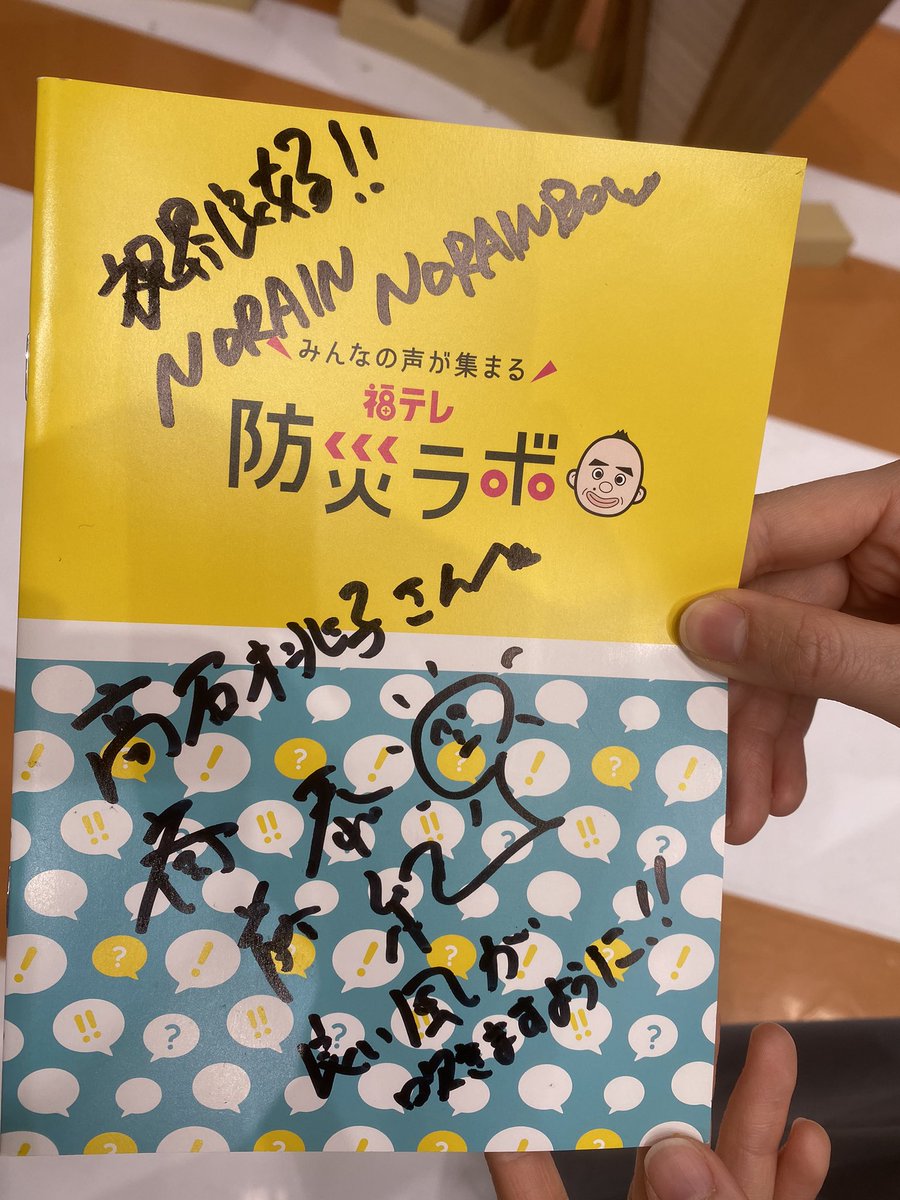 視界良好!!
NORAIN NORAINBOW
みんなの声が集まる
福テレ
防災ラボ
高石桃子さんへ
良い風が
吹きますように!!